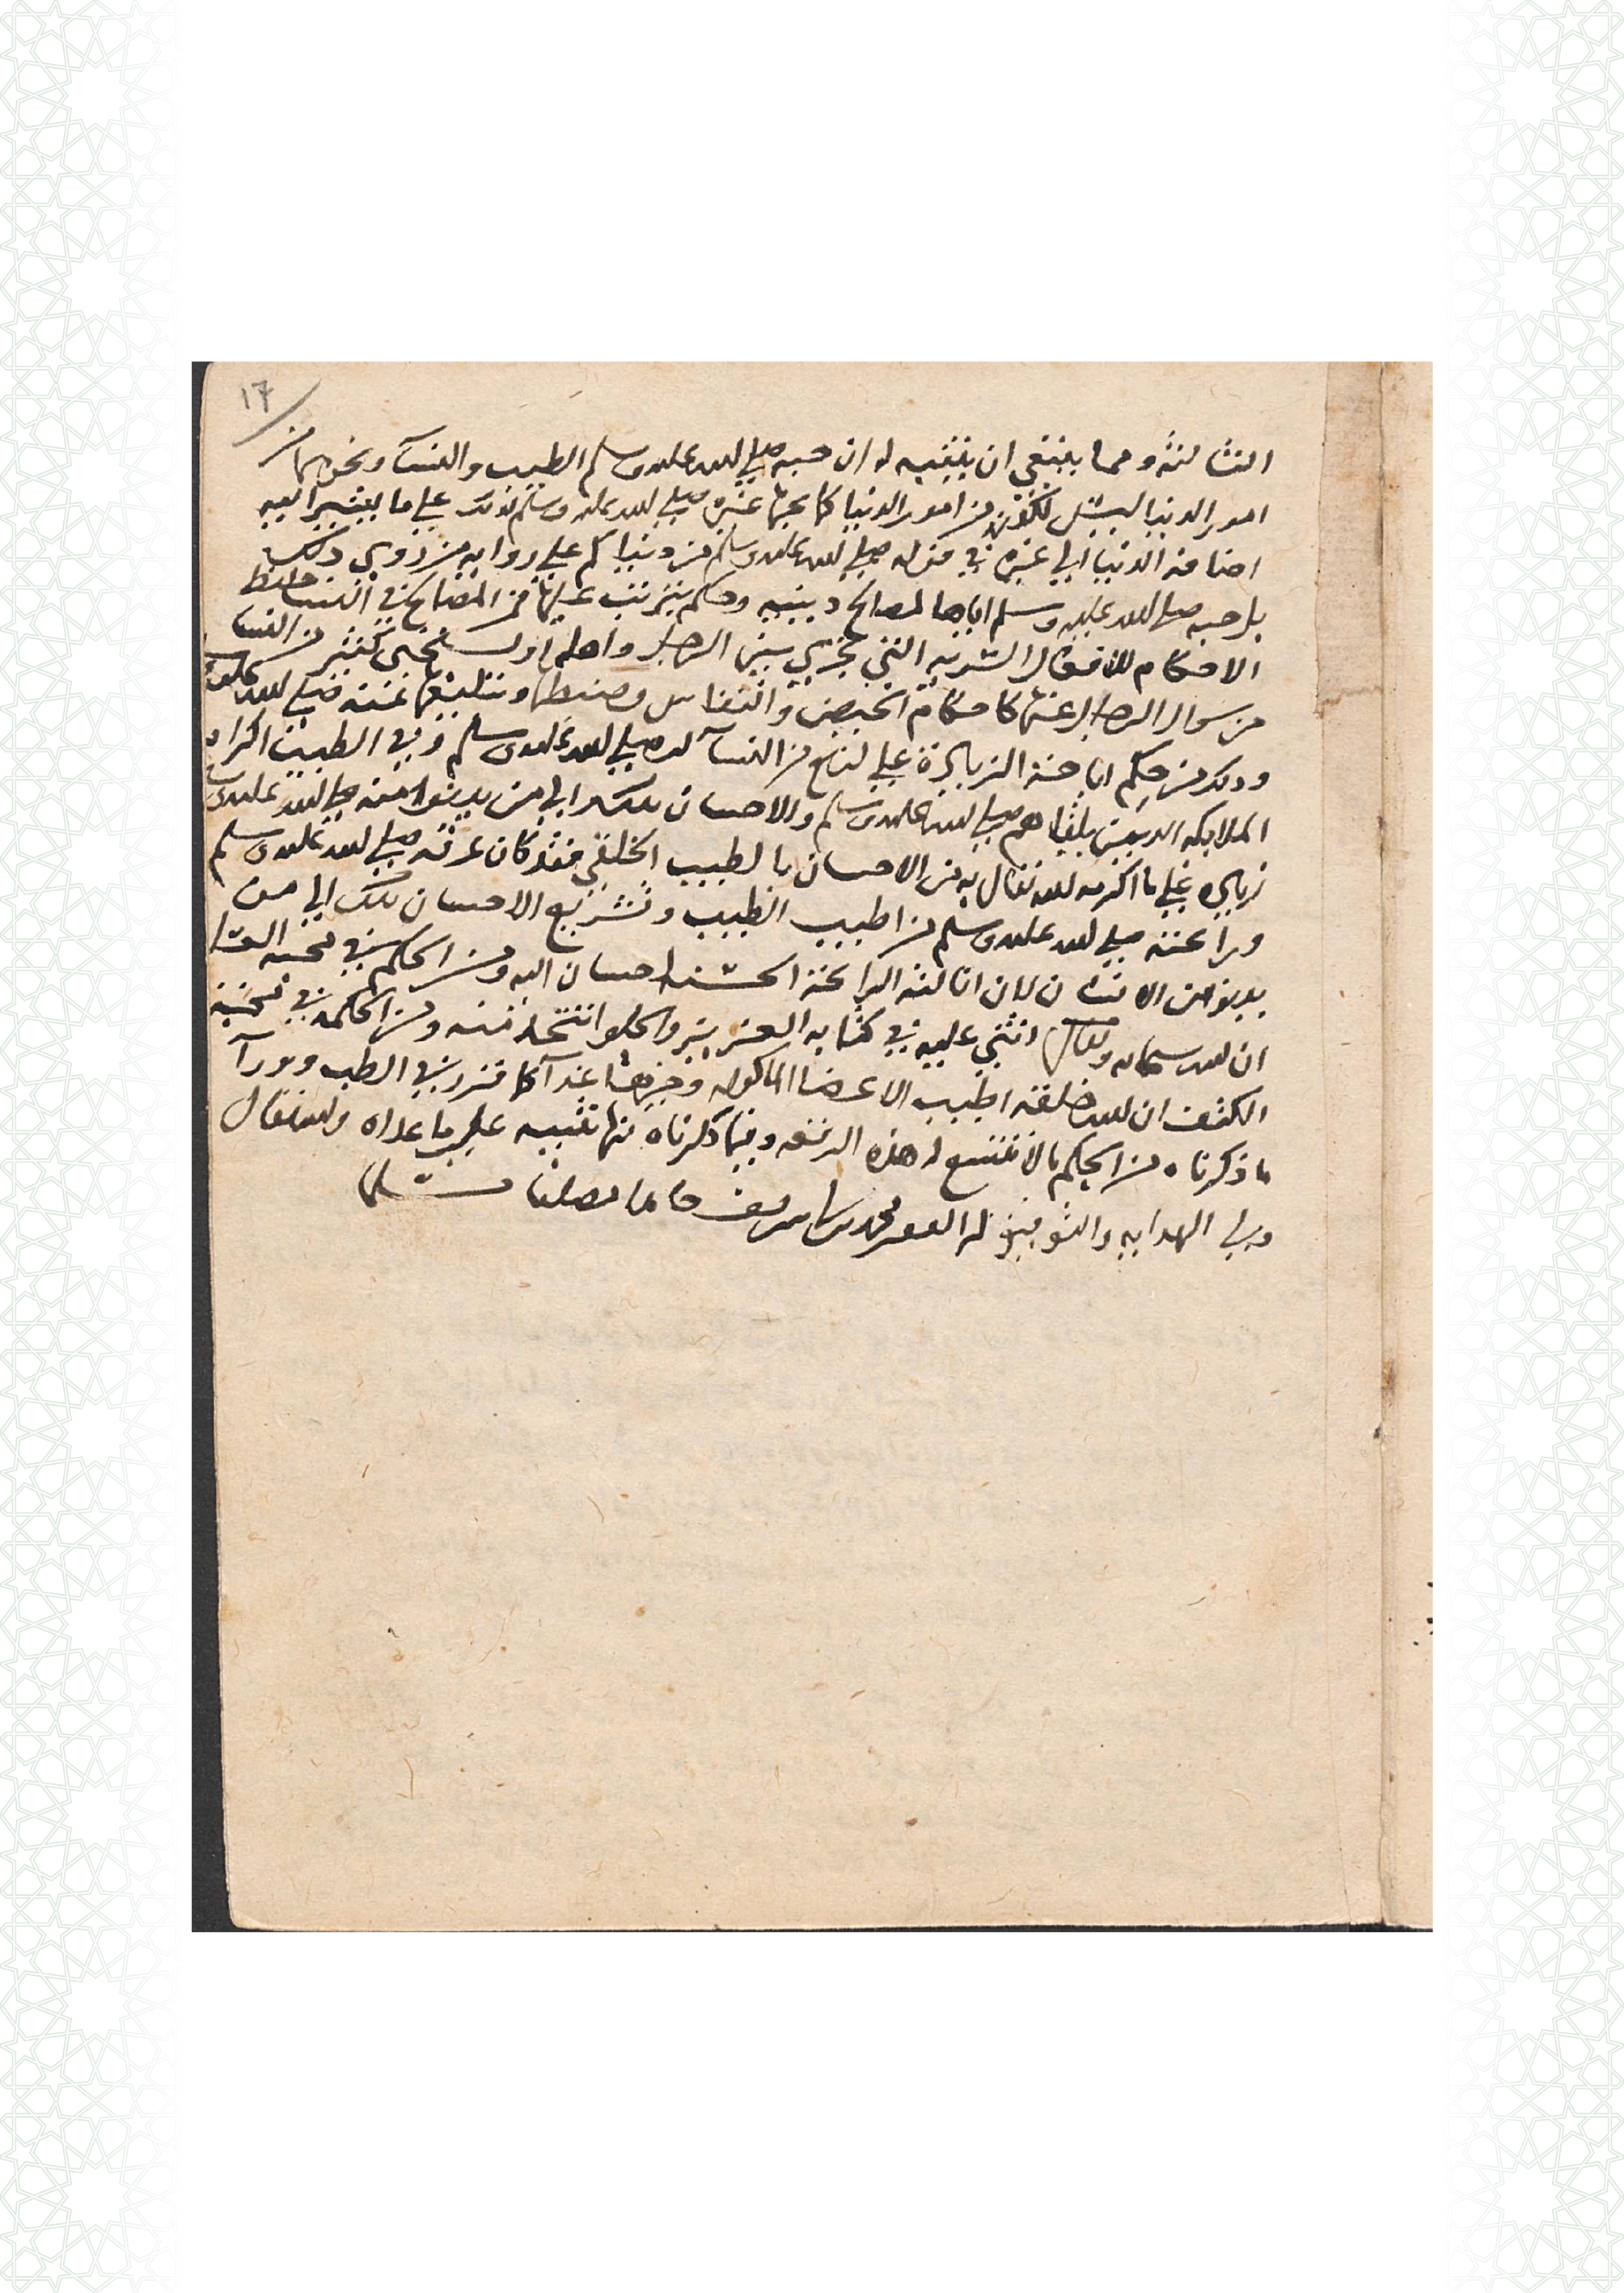 ١٦
الثالثة ومما ينبغي ان يتنبه له ان حبه صلى الله عليه وسلم الطيب والنسآ ونحوهما من
امور الدنيا ليس لكونهن من امور الدنيا كما يحبها غيره صلى الله عليه وسلم لذلك على ما يشير اليه
اضافة الدنيا الى غيره في قوله صلى الله عليه وسلم من دنياكم على رواية من روى ذلك
بل حبه صلى الله عليه وسلم اياها لمصالح دينيه وحكم يترتب عليها فمن المصالح في النسا حفظ
الاحكام للافعال السريه التي تجري بين الرجل واهله ولـ يستحيي كثير من النسا
من سوال الرجل عنها كاحكام الحيض والنفاس وضبطها وتبليغها عنه صلى الله عليه
وذلك من حكم اباحة الزيادة على اربع من النسآ له صلى الله عليه وسلم وفي الطيب اكرام
الملايكه الذين يلقاهم صلى الله عليه وسلم والاحسان بذلك الى من يدنوا منه صلى الله عليه وسلم
زيادة على ما اكرمه الله تعالى به من الاحسان بالطيب الخلقي فقد كان عرقه صلى الله عليه وسلم
ورائحته صلى الله عليه وسلم من اطيب الطيب وتشريع الاحسان بذلك الى من
يدنو من الانسان لان انالته الرائحة الحسنه احسان اليه ومن الحكم في محبه العسل
ان الله سبحانه وتعالى اثنى عليه في كتابه العزيز والحلوا تتخذ منه ومن الحكمه في محبة
الكتف ان الله خلقه اطيب الاعضا الماكوله وخيرها غذآ كما قرر في الطب وورآ
ما ذكرناه من الحكم ما لا تتسع له هذه الورقه وفيما ذكرناه منها تنبيه على ما عداه والله تعالى
ولي الهدايه والتوفيق محمد بن حامدا مصليا مسلما